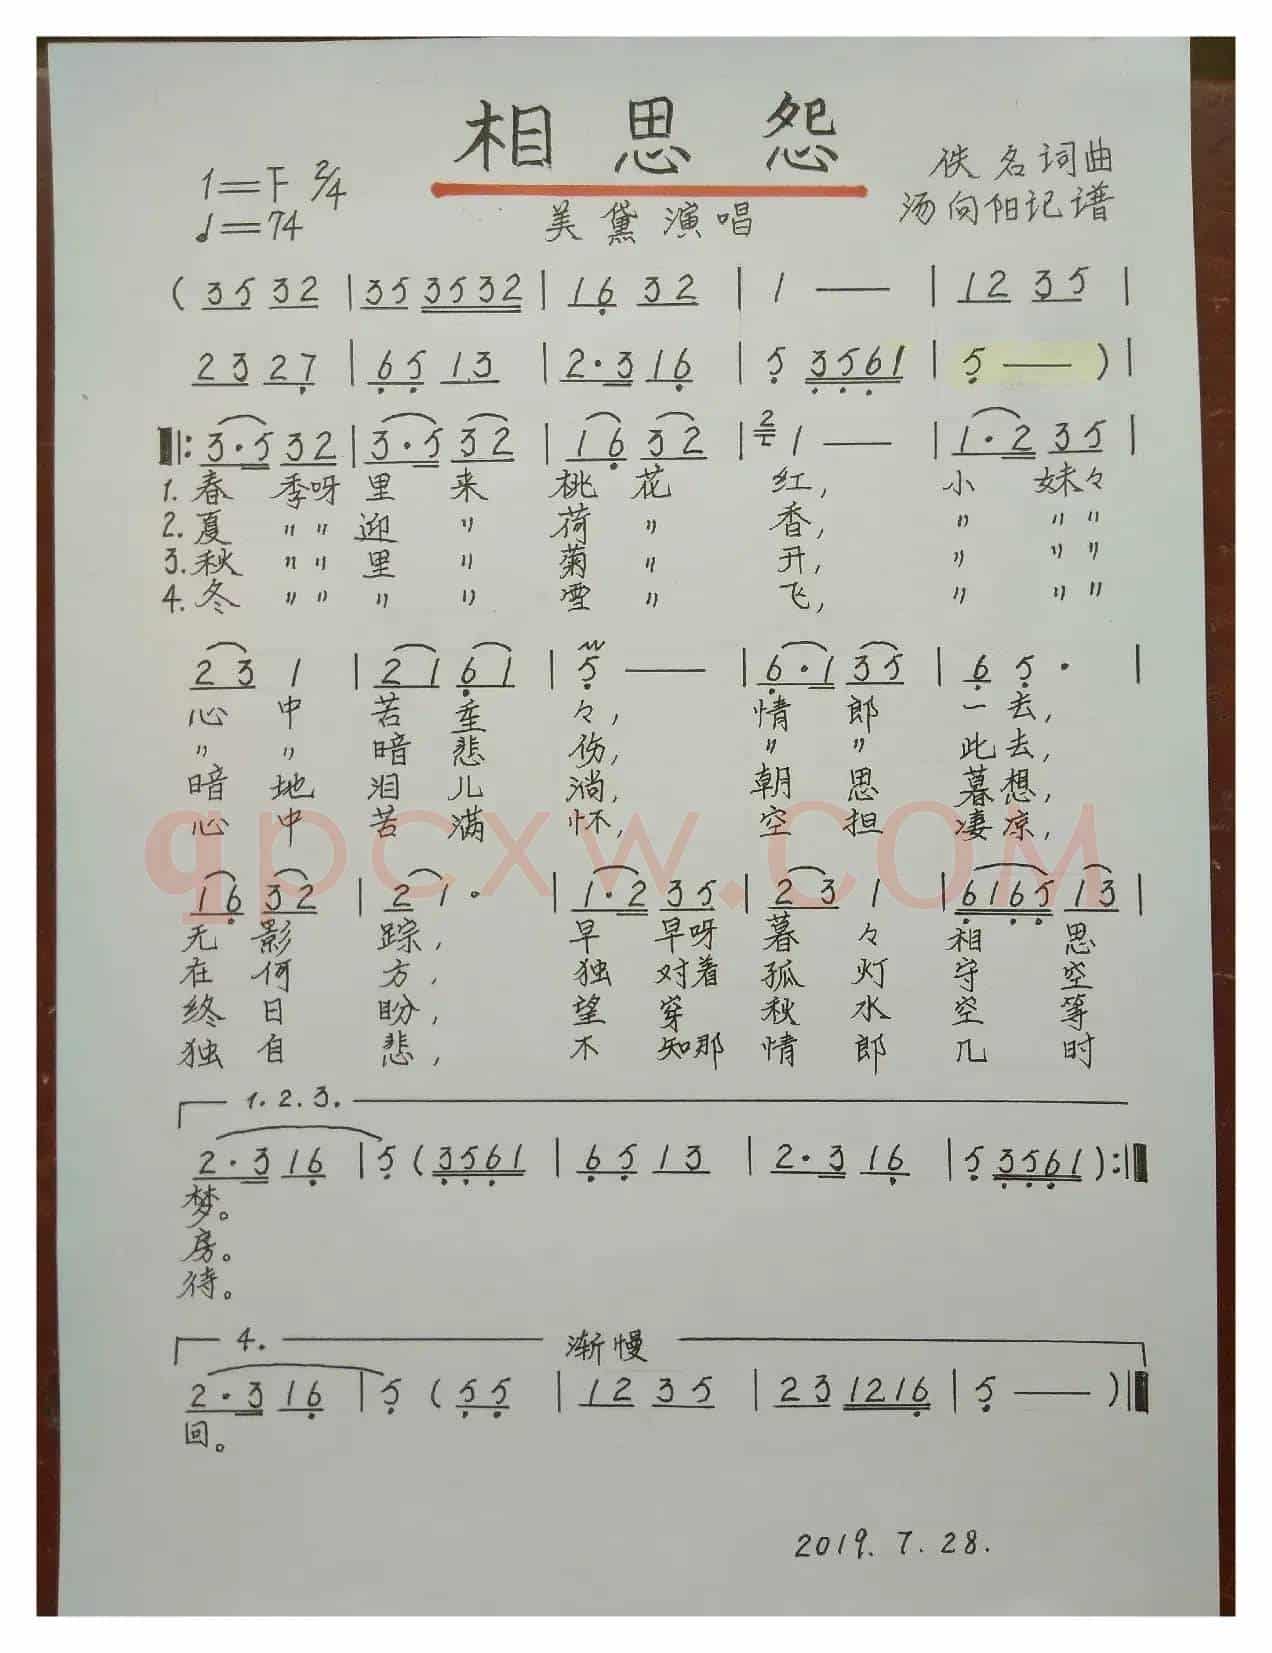 相思怨
1=F 2/4
♩=74
美黛演唱
佚名词曲
汤向阳记谱
( 35 32 | 35 3532 | 16 32 | 1 — | 12 35 |
23 27 | 65 13 | 2·3 16 | 5 3561 | 5 — ) |
‖: 3·5 32 | 3·5 32 | 16 32 | 2 1 — | 1·2 35 |
1. 春 季呀 里 来 桃 花 红, 小 妹々
2. 夏 〃 〃 迎 〃 荷 〃 香, 〃 〃 〃
3. 秋 〃 〃 里 〃 菊 〃 开, 〃 〃 〃
4. 冬 〃 〃 〃 〃 雪 〃 飞, 〃 〃 〃
23 1 | 21 61 | 5 — | 6·1 35 | 6 5· |
心 中 苦 重 々, 情 郎 一 去,
〃 〃 暗 悲 伤, 〃 〃 此 去,
暗 地 泪 儿 淌, 朝 思 暮 想,
心 中 苦 满 怀, 空 担 凄 凉,
16 32 | 2 1· | 1·2 35 | 23 1 | 6165 13 |
无 影 踪, 早 早呀 暮 々 相 思
在 何 方, 独 对着 孤 灯 守 空
终 日 盼, 望 穿 秋 水 空 等
独 自 悲, 不 知那 情 郎 几 时
1. 2. 3.
2·3 16 | 5 ( 3561 | 65 13 | 2·3 16 | 5 3561 ) :‖
梦。
房。
待。
4. 渐慢
2·3 16 | 5 ( 55 | 12 35 | 23 1216 | 5 — ) ‖
回。
2019. 7. 28.
qpcxw.COM